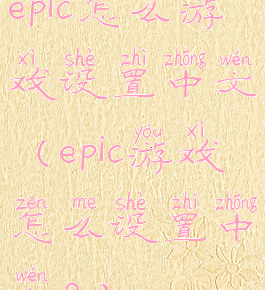 epic怎么游
xì shè zhì zhōng wén
戏设置中文
yóu xì
(epic游戏
zěn me shè zhì zhōng
怎么设置中
wén